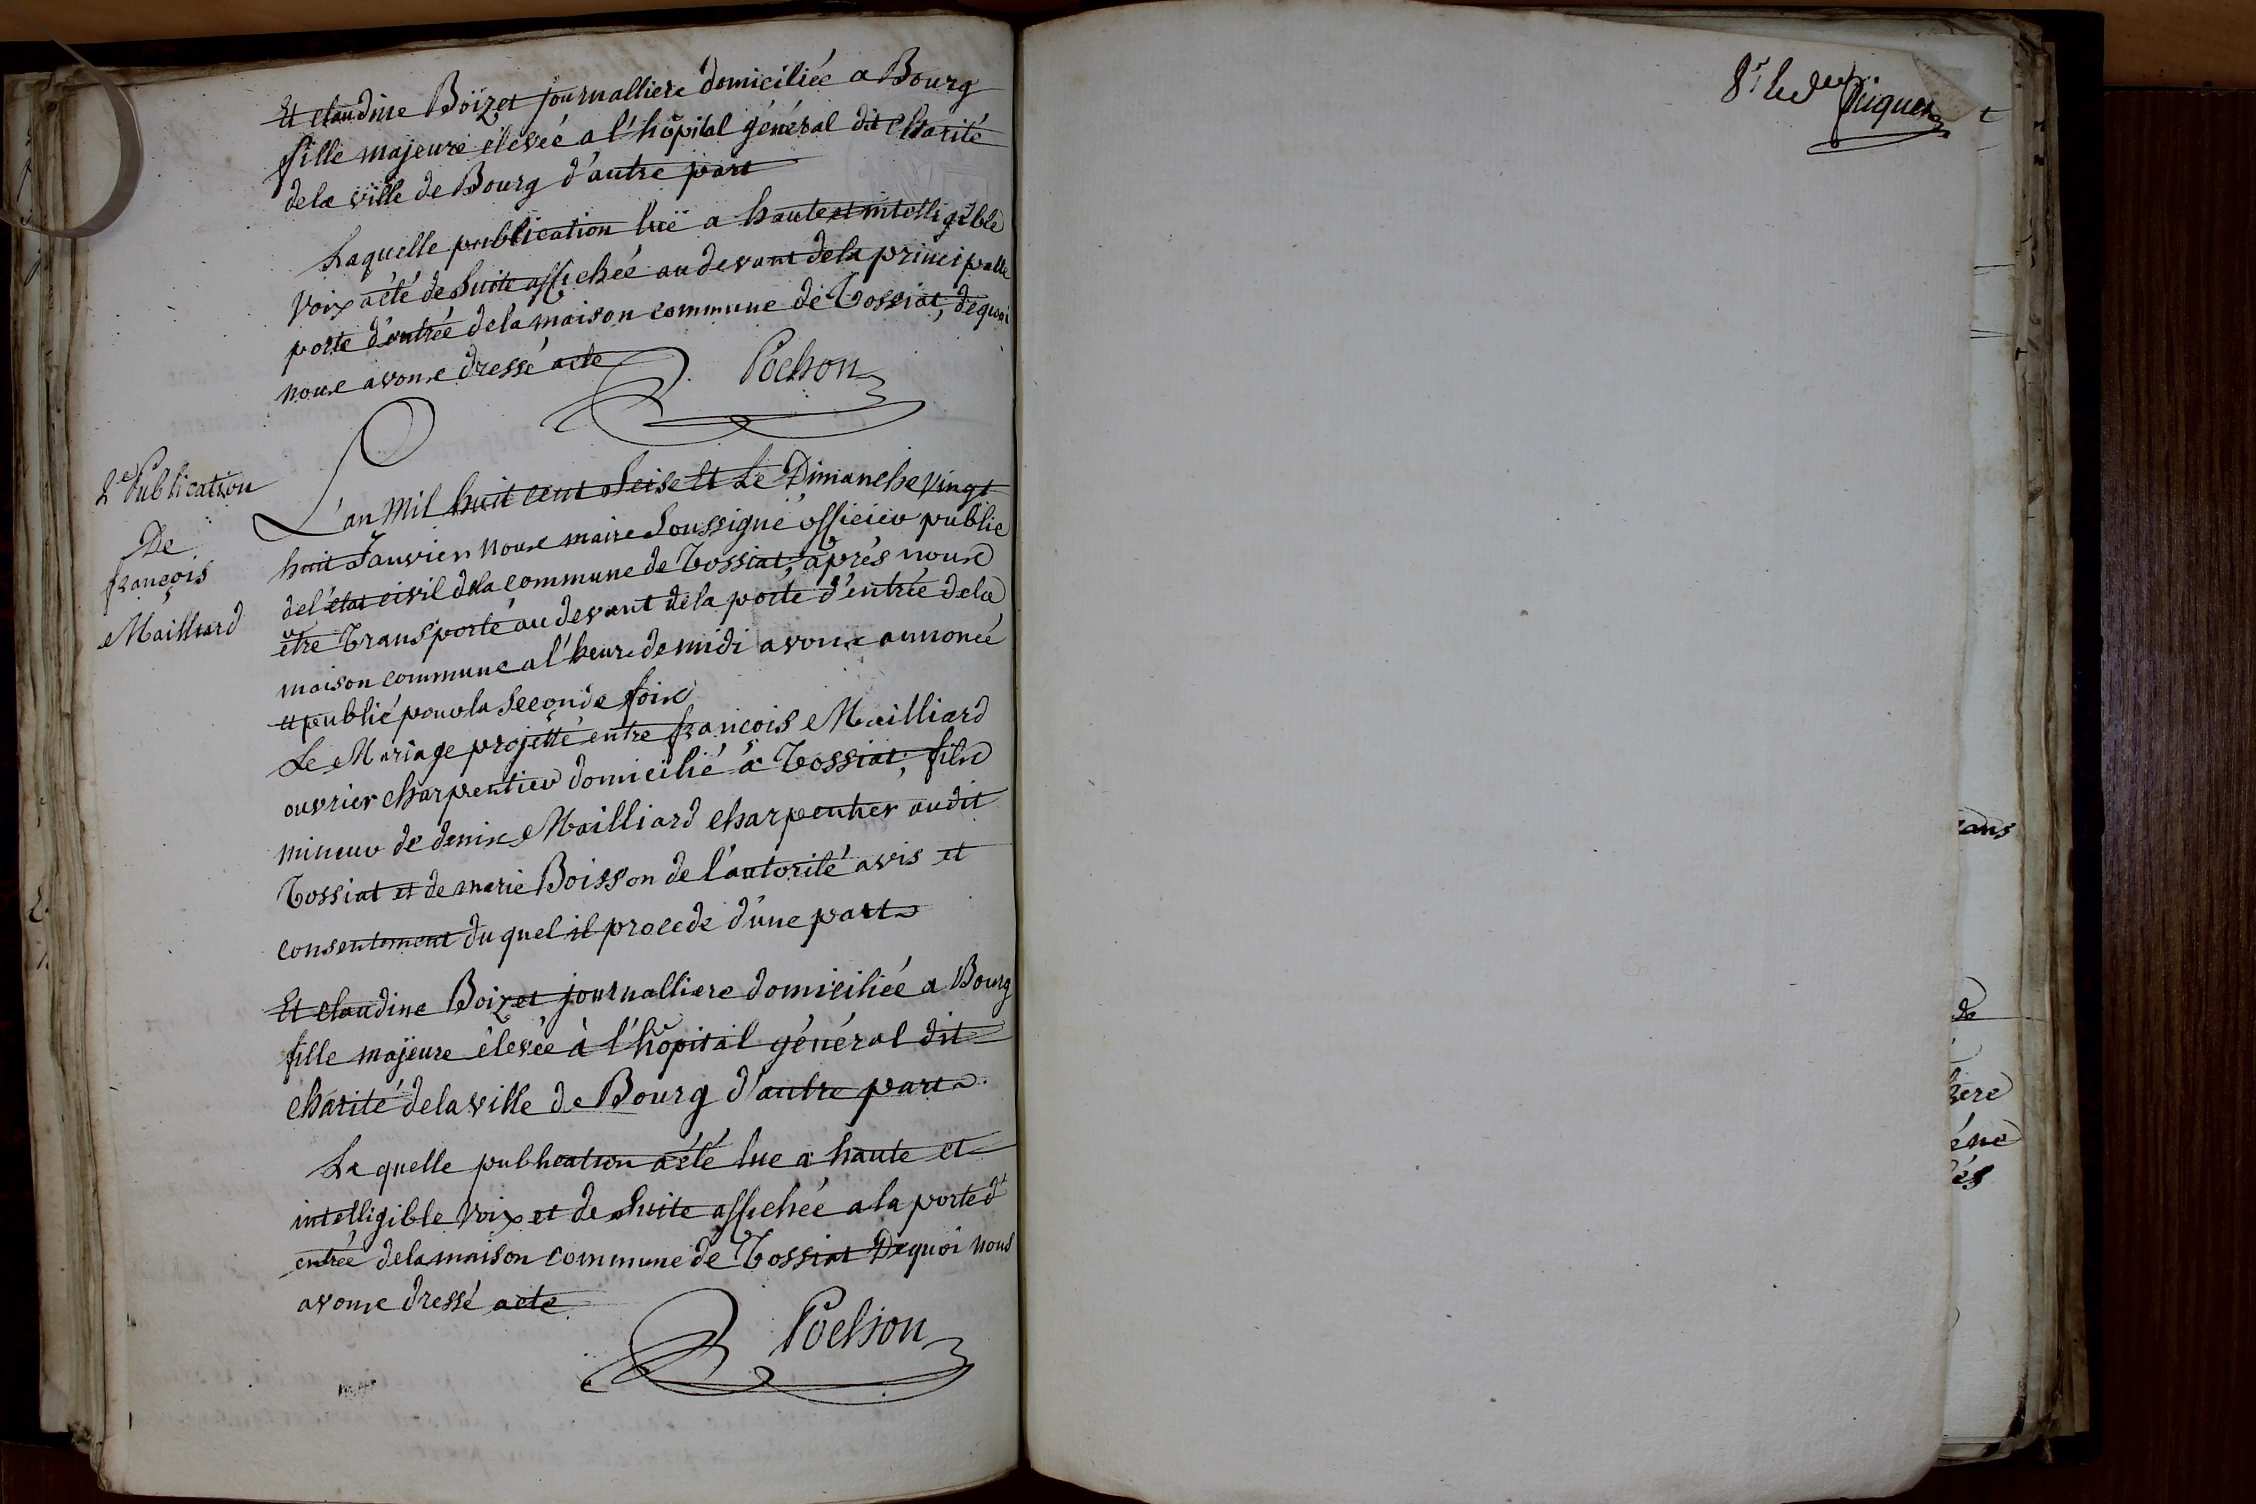 Et claudine Boizet journalliere domiciliée a Bourg
fille majeure élevée a l'hôpital général dit Charité
dela ville de Bourg d'autre part
Laquelle publication luë a haute et intelligible
voix a été de suite affichée au devant dela principalle
porte d'entrée dela maison commune de Tossiat, dequoi
nous avons dressé acte
Pochon
2e Publication
De
françois
Mailliard
L'an mil huit cent seise et Le Dimanche vingt
huit Janvier nous maire soussigné officier public
del'état civil dela commune de Tossiat, après nous
être transporté au devant dela porte d'entrée dela
maison commune a l'heure de midi avons annoncé
et publié pour la seconde fois
Le Mariage projetté entre françois Mailliard
ouvrier charpentier domicilié à Tossiat, fils
mineur de denis Mailliard charpentier audit
Tossiat et de marie Boisson de l'autorité avis et
consentement du quel il procede d'une part
Et claudine Boizet journalliere domiciliée a Bourg
fille majeure élevée à l'hôpital général dit
charité dela ville de Bourg d'autre part
La quelle publication a été lue a haute et
intelligible voix et de suite affichée a la porte d'
entrée dela maison commune de Tossiat Dequoi nous
avons dressé acte
Pochon
8e